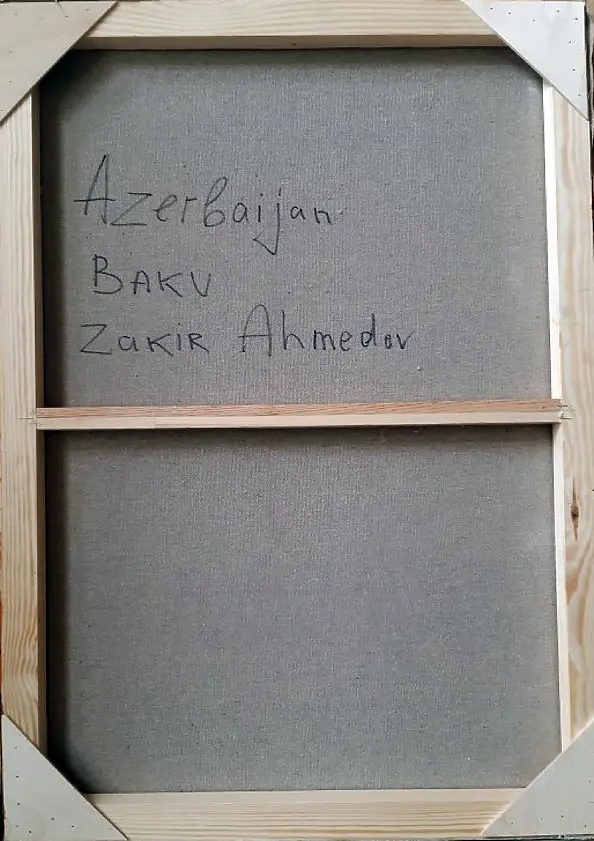 Azerbaijan
BAKU
Zakir Ahmedov